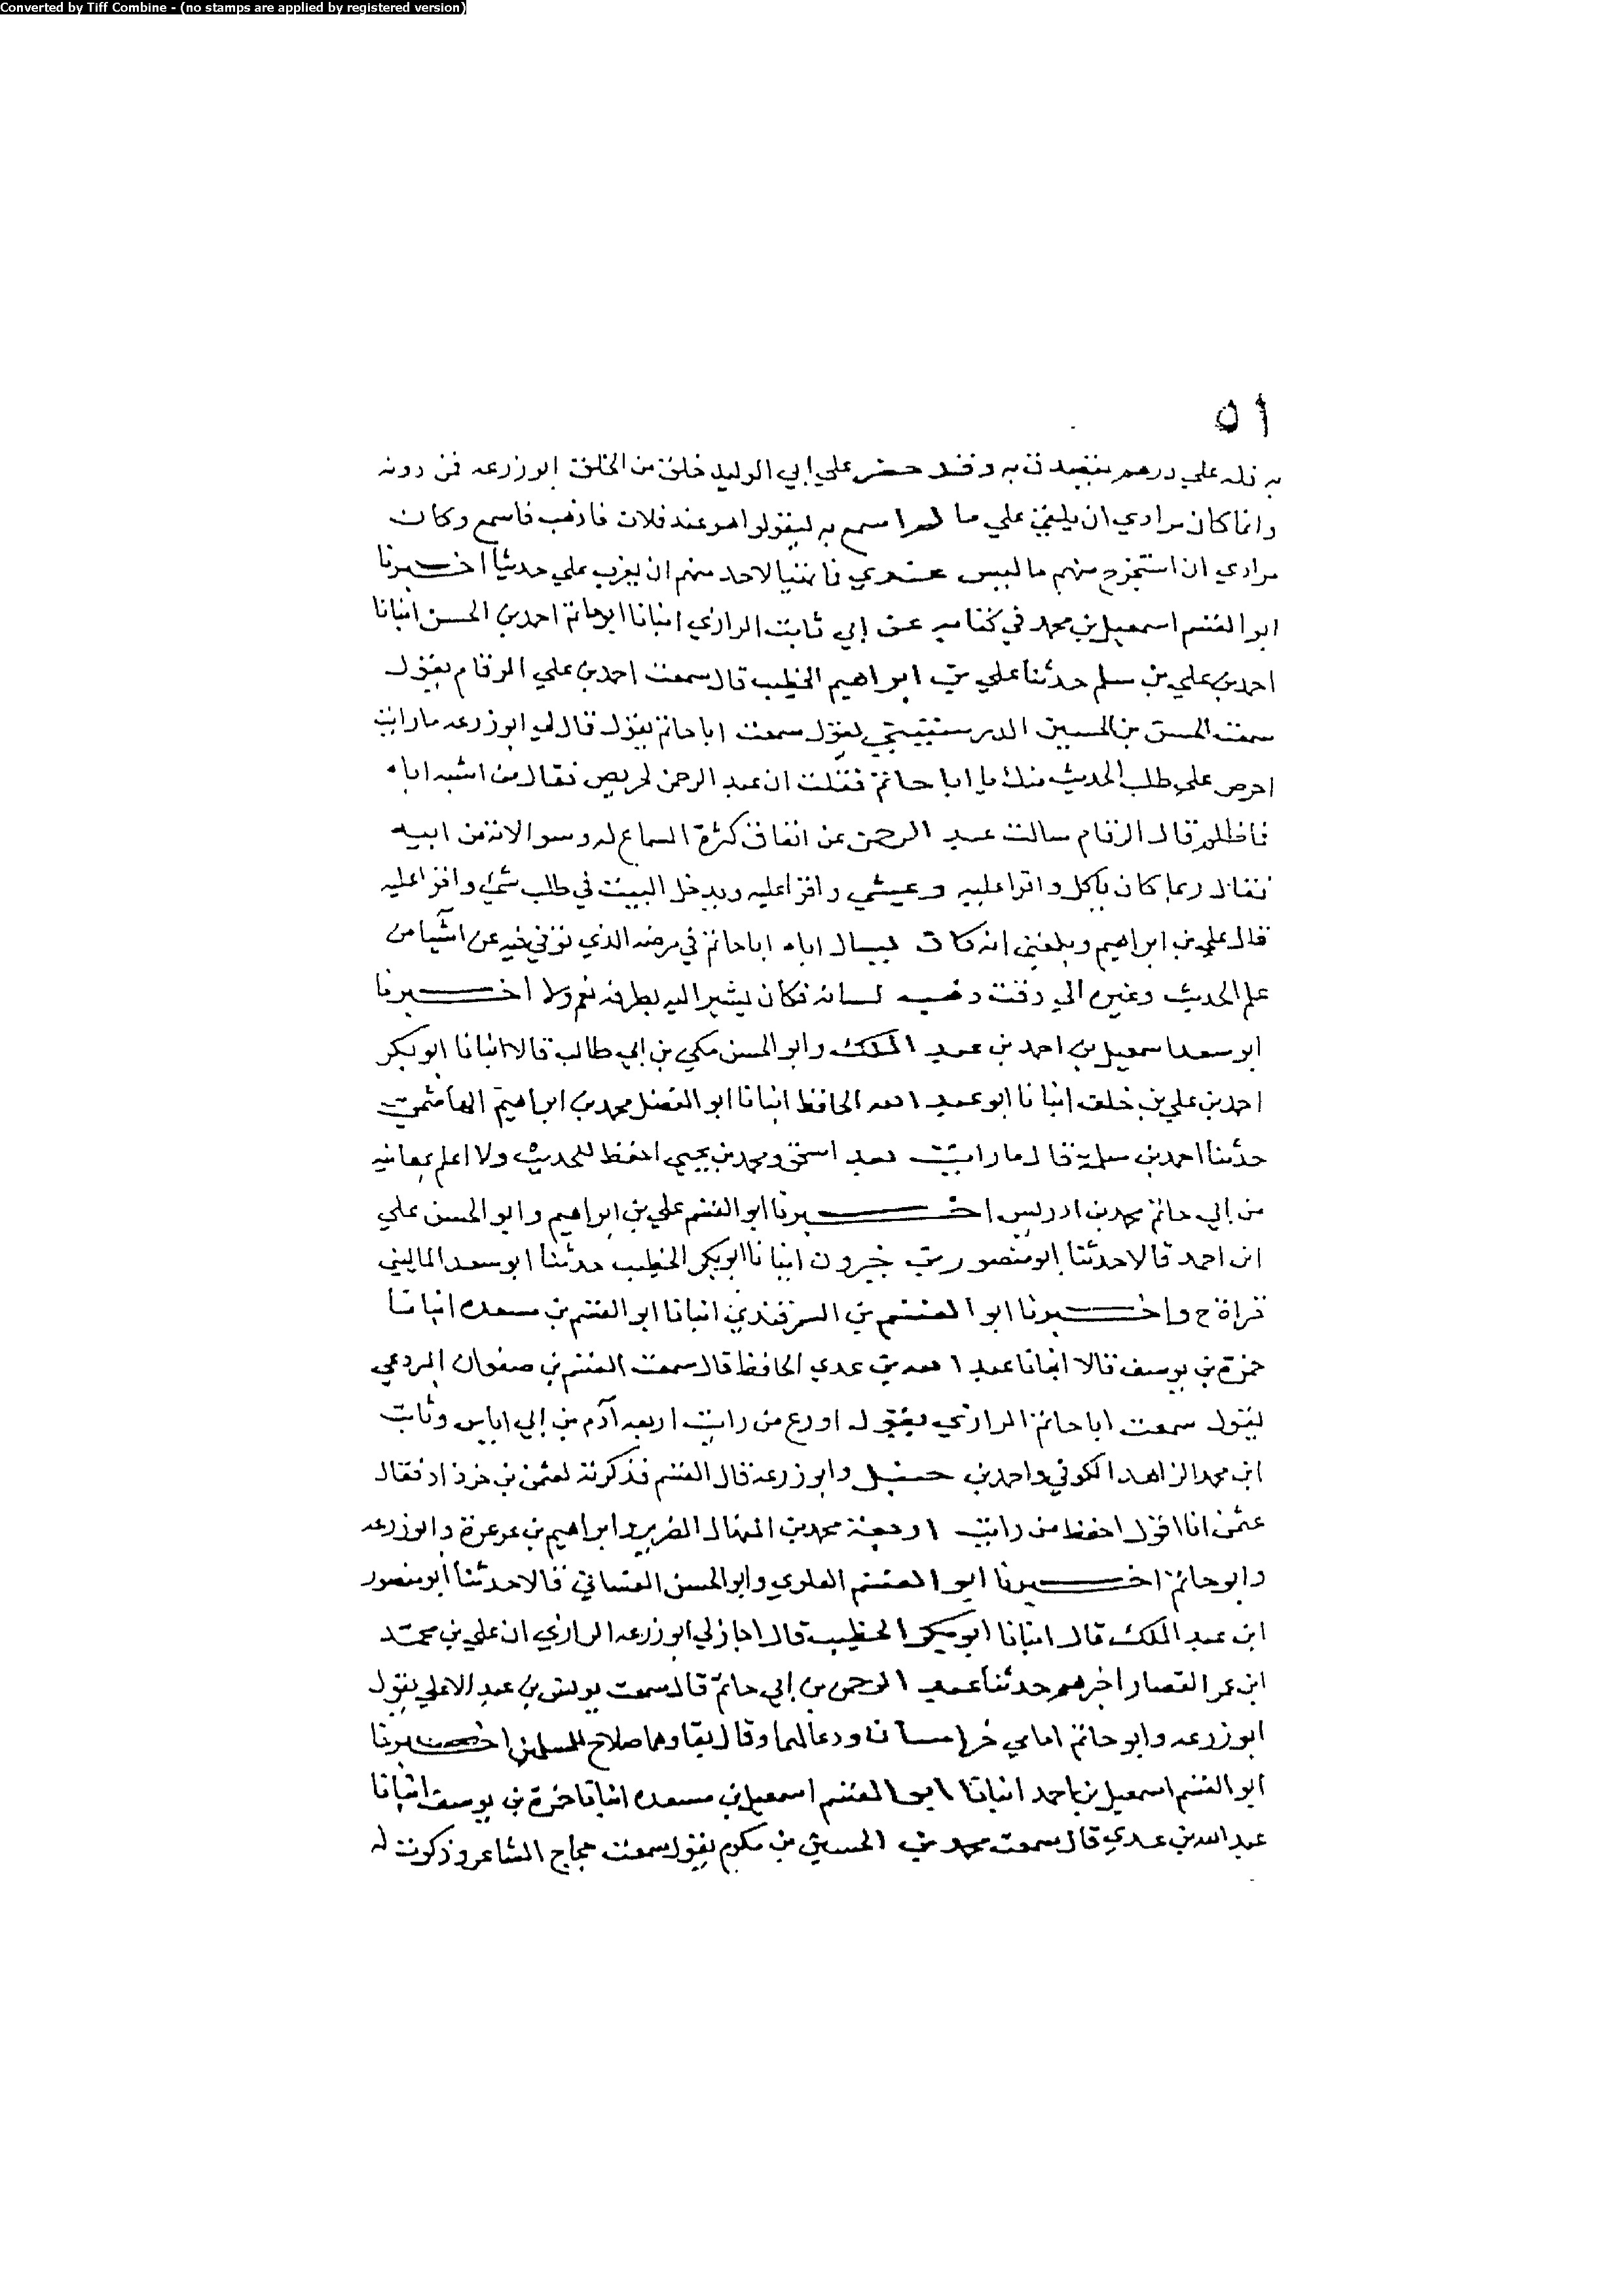 Converted by Tiff Combine - (no stamps are applied by registered version)
٥١
به فله علي درهم يتصدق به وقد حضر علي ابي الوليد خلق من الخلق ابو زرعه فمن دونه
وانما كان مرادي ان يلقي علي ما لم اسمع به ليقولوا هو عند فلان فاذهب فاسمع وكان
مرادي ان استخرج منهم ما ليس عندي فما تهيا لاحد منهم ان يغرب علي حديثا اخبرنا
ابو القسم اسمعيل بن محمد في كتابه عن ابي ثابت الرازي انبانا ابو حاتم احمد بن الحسن انبانا
احمد بن علي بن سلم حدثنا علي بن ابراهيم الخطيب قال سمعت احمد بن علي الرقام يقول
سمعت الحسن بن الحسين الدرستيني يقول سمعت ابا حاتم يقول قال لي ابو زرعه ما رايت
احرص علي طلب الحديث منك يا ابا حاتم فقلت ان عبد الرحمن لحريص فقال من اشبه اباه
فما ظلم قال الرقام سالت عبد الرحمن عن اتفاق كثرة السماع له وسوالاته من ابيه
فقال ربما كان ياكل واقرا عليه ويمشي واقرا عليه ويدخل البيت في طلب شيء واقرا عليه
قال علي بن ابراهيم وبلغني انه كان يسال اباه ابا حاتم في مرضه الذي توفي فيه عن اشيا من
علم الحديث وغيره الي وقت ذهب لسانه فكان يشير اليه بطرفه نعم ولا اخبرنا
ابو سعد اسمعيل بن احمد بن عبد الملك وابو الحسن مكي بن ابي طالب قالا انبانا ابو بكر
احمد بن علي بن خلف انبانا ابو عبد الله الحافظ انبانا ابو الفضل محمد بن ابراهيم الهاشمي
حدثنا احمد بن سلمة قال ما رايت بعد اسحق ومحمد بن يحيي احفظ للحديث ولا اعلم بمعانيه
من ابي حاتم محمد بن ادريس اخبرنا ابو القسم علي بن ابراهيم وابو الحسن علي
ابن احمد قالا حدثنا ابو منصور بن خيرون انبانا ابو بكر الخطيب حدثنا ابو سعد الماليني
قراة ح واخبرنا ابو القسم بن السمرقندي انبانا ابو القسم بن مسعده انبانا
حمزة بن يوسف قالا انبانا عبد الله بن عدي الحافظ قال سمعت القسم بن صفوان البردعي
يقول سمعت ابا حاتم الرازي يقول اورع من رايت اربعه آدم بن ابي اياس وثابت
ابن محمد الزاهد الكوفي واحمد بن حنبل وابو زرعه قال القسم فذكرته لعثمن بن خرزاد فقال
عثمن انا اقول احفظ من رايت اربعة محمد بن المنهال الضرير وابراهيم بن عرعرة وابو زرعه
وابو حاتم اخبرنا ابو القسم العلوي وابو الحسن الغساني قالا حدثنا ابو منصور
ابن عبد الملك قال انبانا ابو بكر الخطيب قال اجاز لي ابو زرعه الرازي ان علي بن محمد
ابن عمر القصار اخبرهم حدثنا عبد الرحمن بن ابي حاتم قال سمعت يونس بن عبد الاعلي يقول
ابو زرعه وابو حاتم امامي خراسان ودعا لهما وقال بقاوهما صلاح للمسلمين اخبرنا
ابو القسم اسمعيل بن احمد انبانا ابو القسم اسمعيل بن مسعده انبانا حمزة بن يوسف انبانا
عبد الله بن عدي قال سمعت محمد بن الحسين بن مكرم يقول سمعت حجاج الشاعر وذكرت له